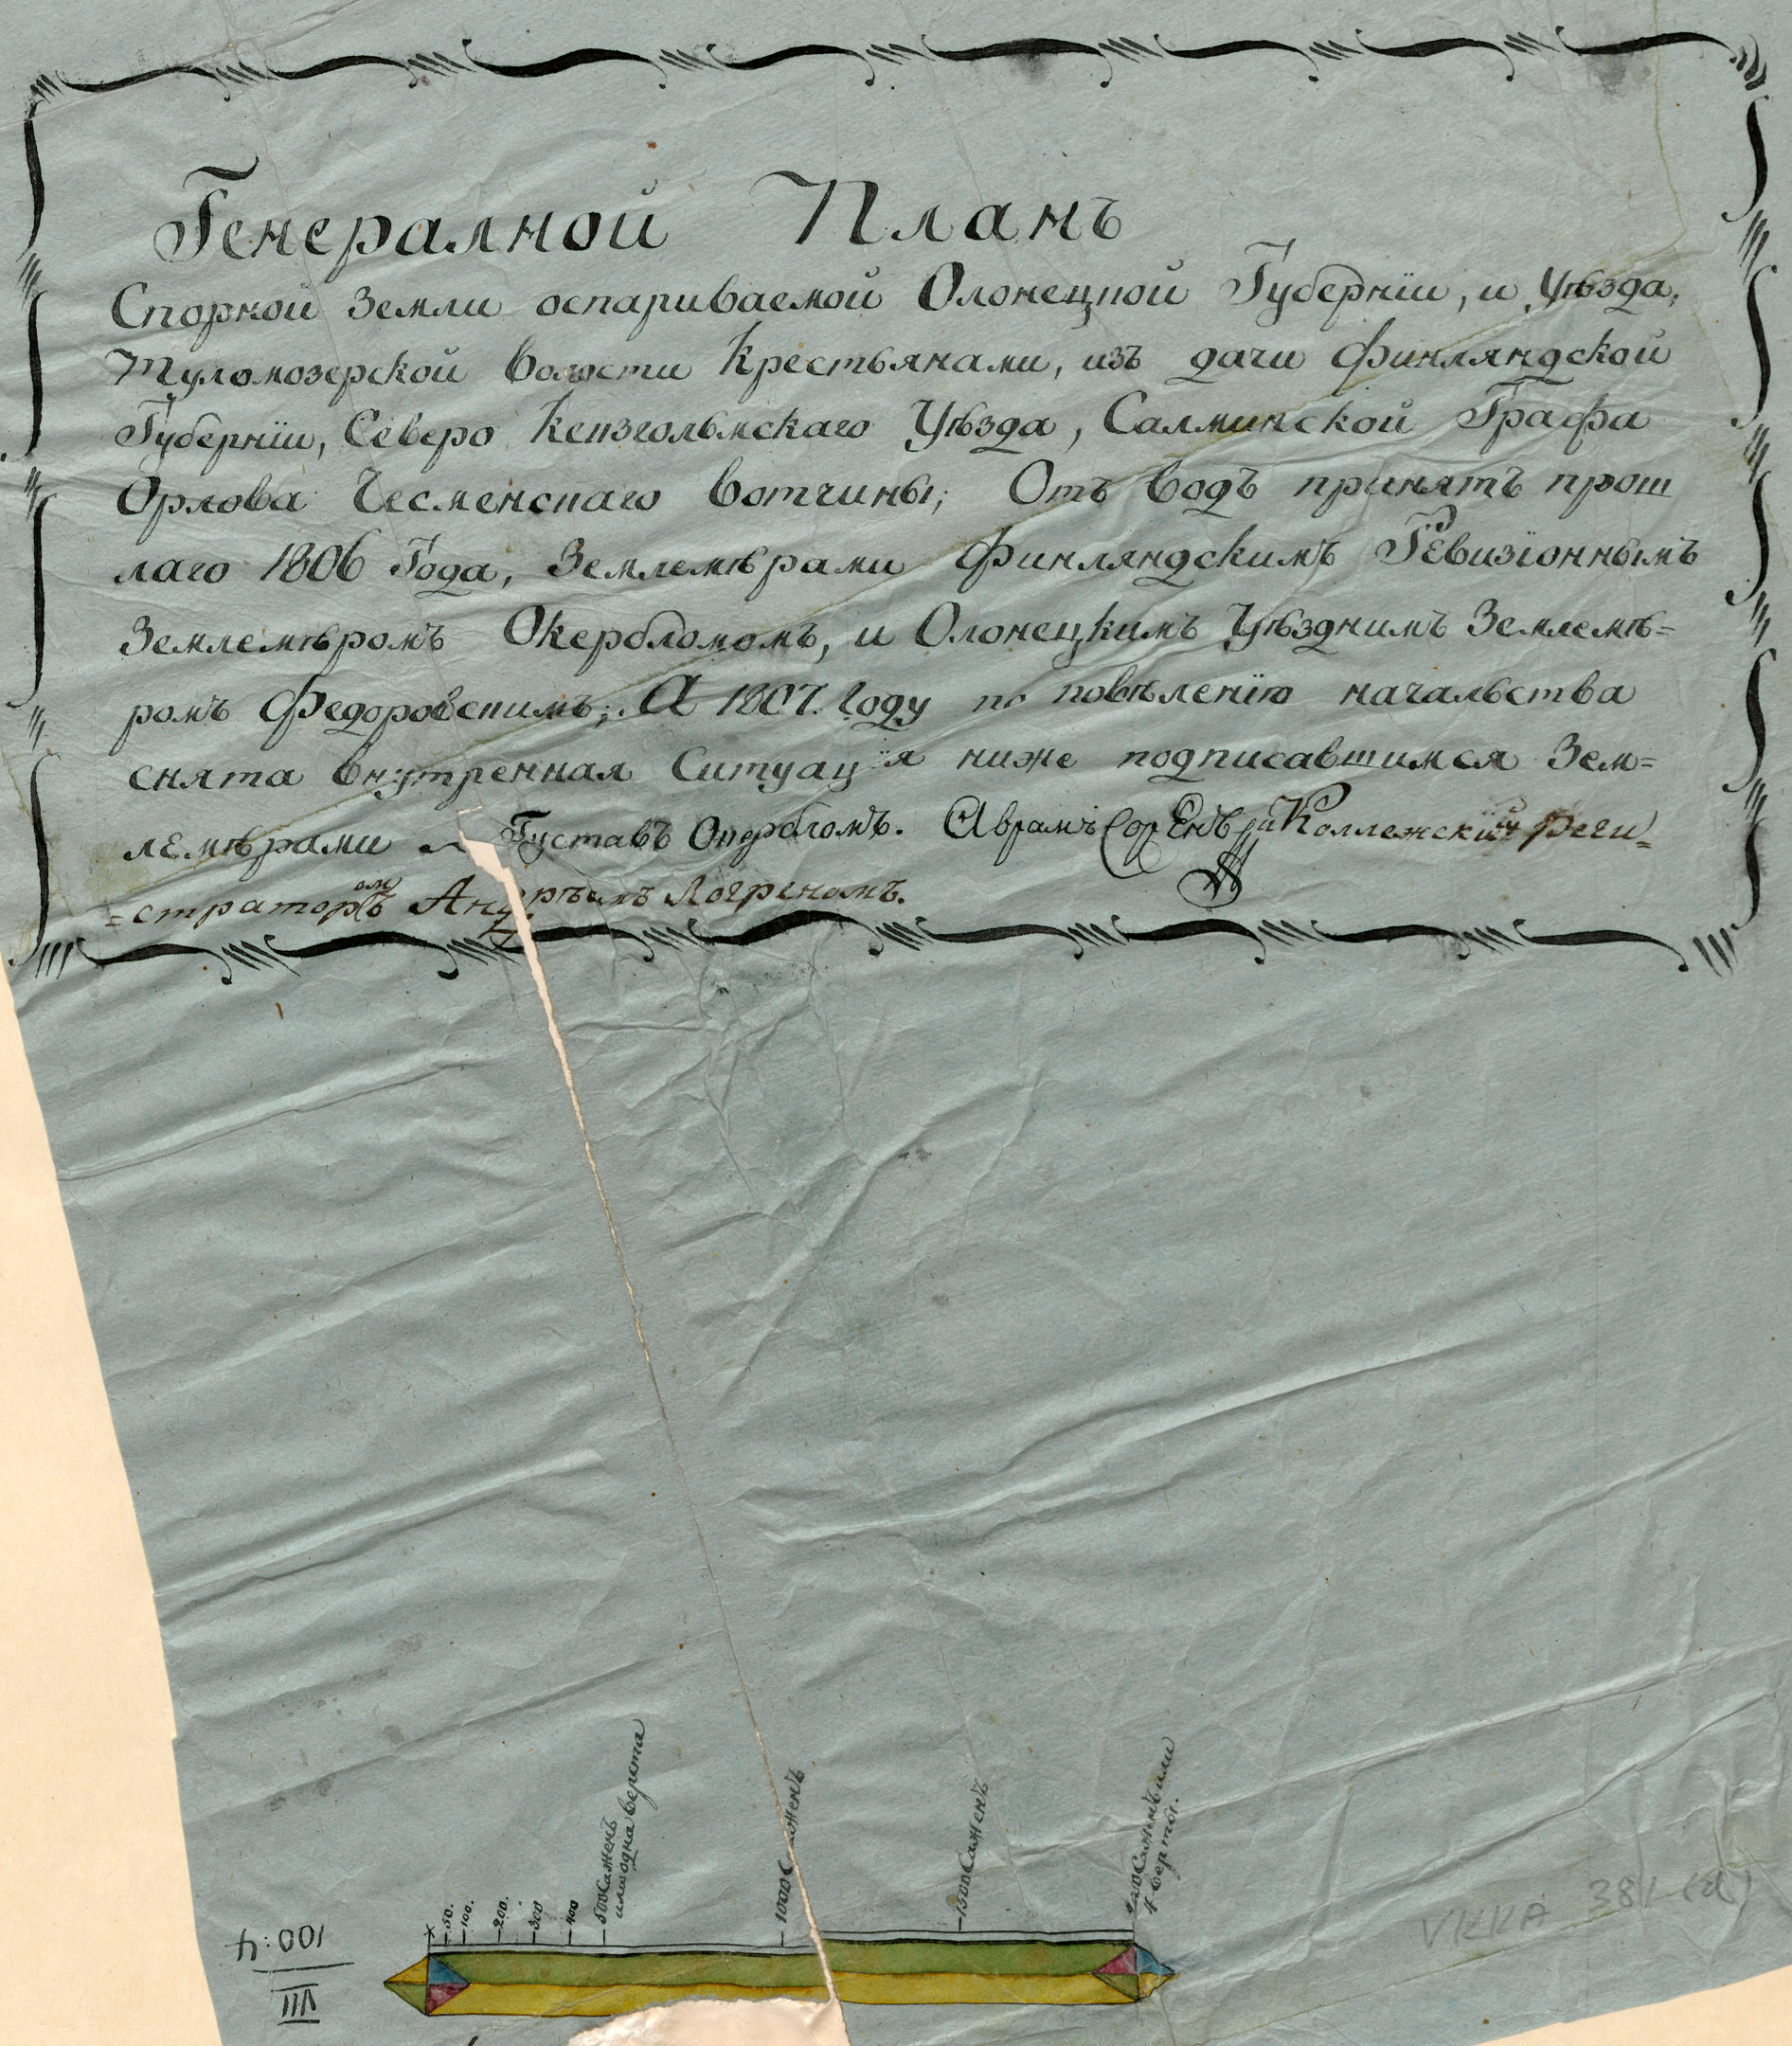 Генералной Планъ
Спорной Земли оспариваемой Олонецкой Губернїи, и Уѣзда,
Туломозерской Волости Крестьянами, изъ дачи Финляндской
Губернїи, Северо Кексгольмскаго Уѣзда, Салминской Графа
Орлова Чесменскаго Вотчины; Отъ Водъ принятъ прош
лаго 1806 Года, Землемѣрами Финляндскимъ Ревизїоннымъ
Землемѣромъ Окерблономъ, и Олонецкимъ Уѣзднимъ Землемѣ=
ромъ Федоровскимъ; А 1807. Году по повѣленїю начальства
снята внутренная Ситуацїя ниже подписавшимся Зем=
лемѣрами Густавъ Окербломъ. Аврамъ Коллежский Реги=
=стратор омъ Логреномъ.
50.
100.
200.
300
400
500 Саженъ
или одна верста
1000 Саженъ
1500 Саженъ
2000 Саженъ или
4 версты.
100:4
VIII
VKKA 381 (a)